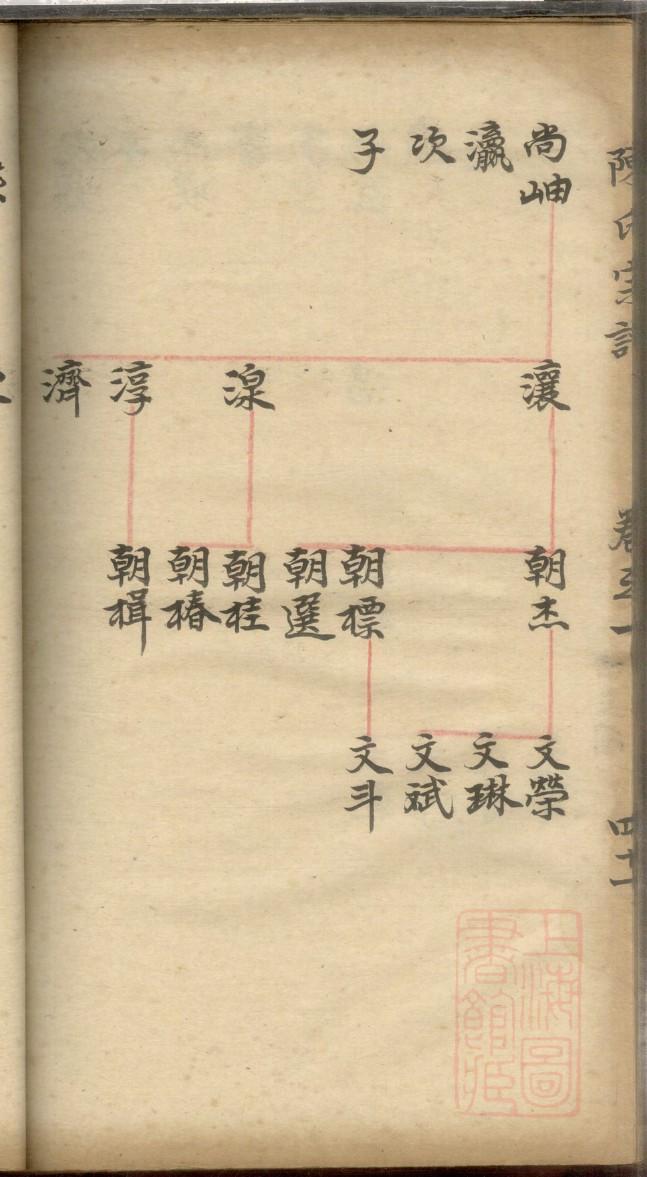 陳氏宗譜
四十一
尚岫
瀛
次
子
瀼
湶
淳
濟
朝杰
朝標
朝選
朝桂
朝椿
朝楫
文榮
文琳
文斌
文斗
上海圖
書館藏